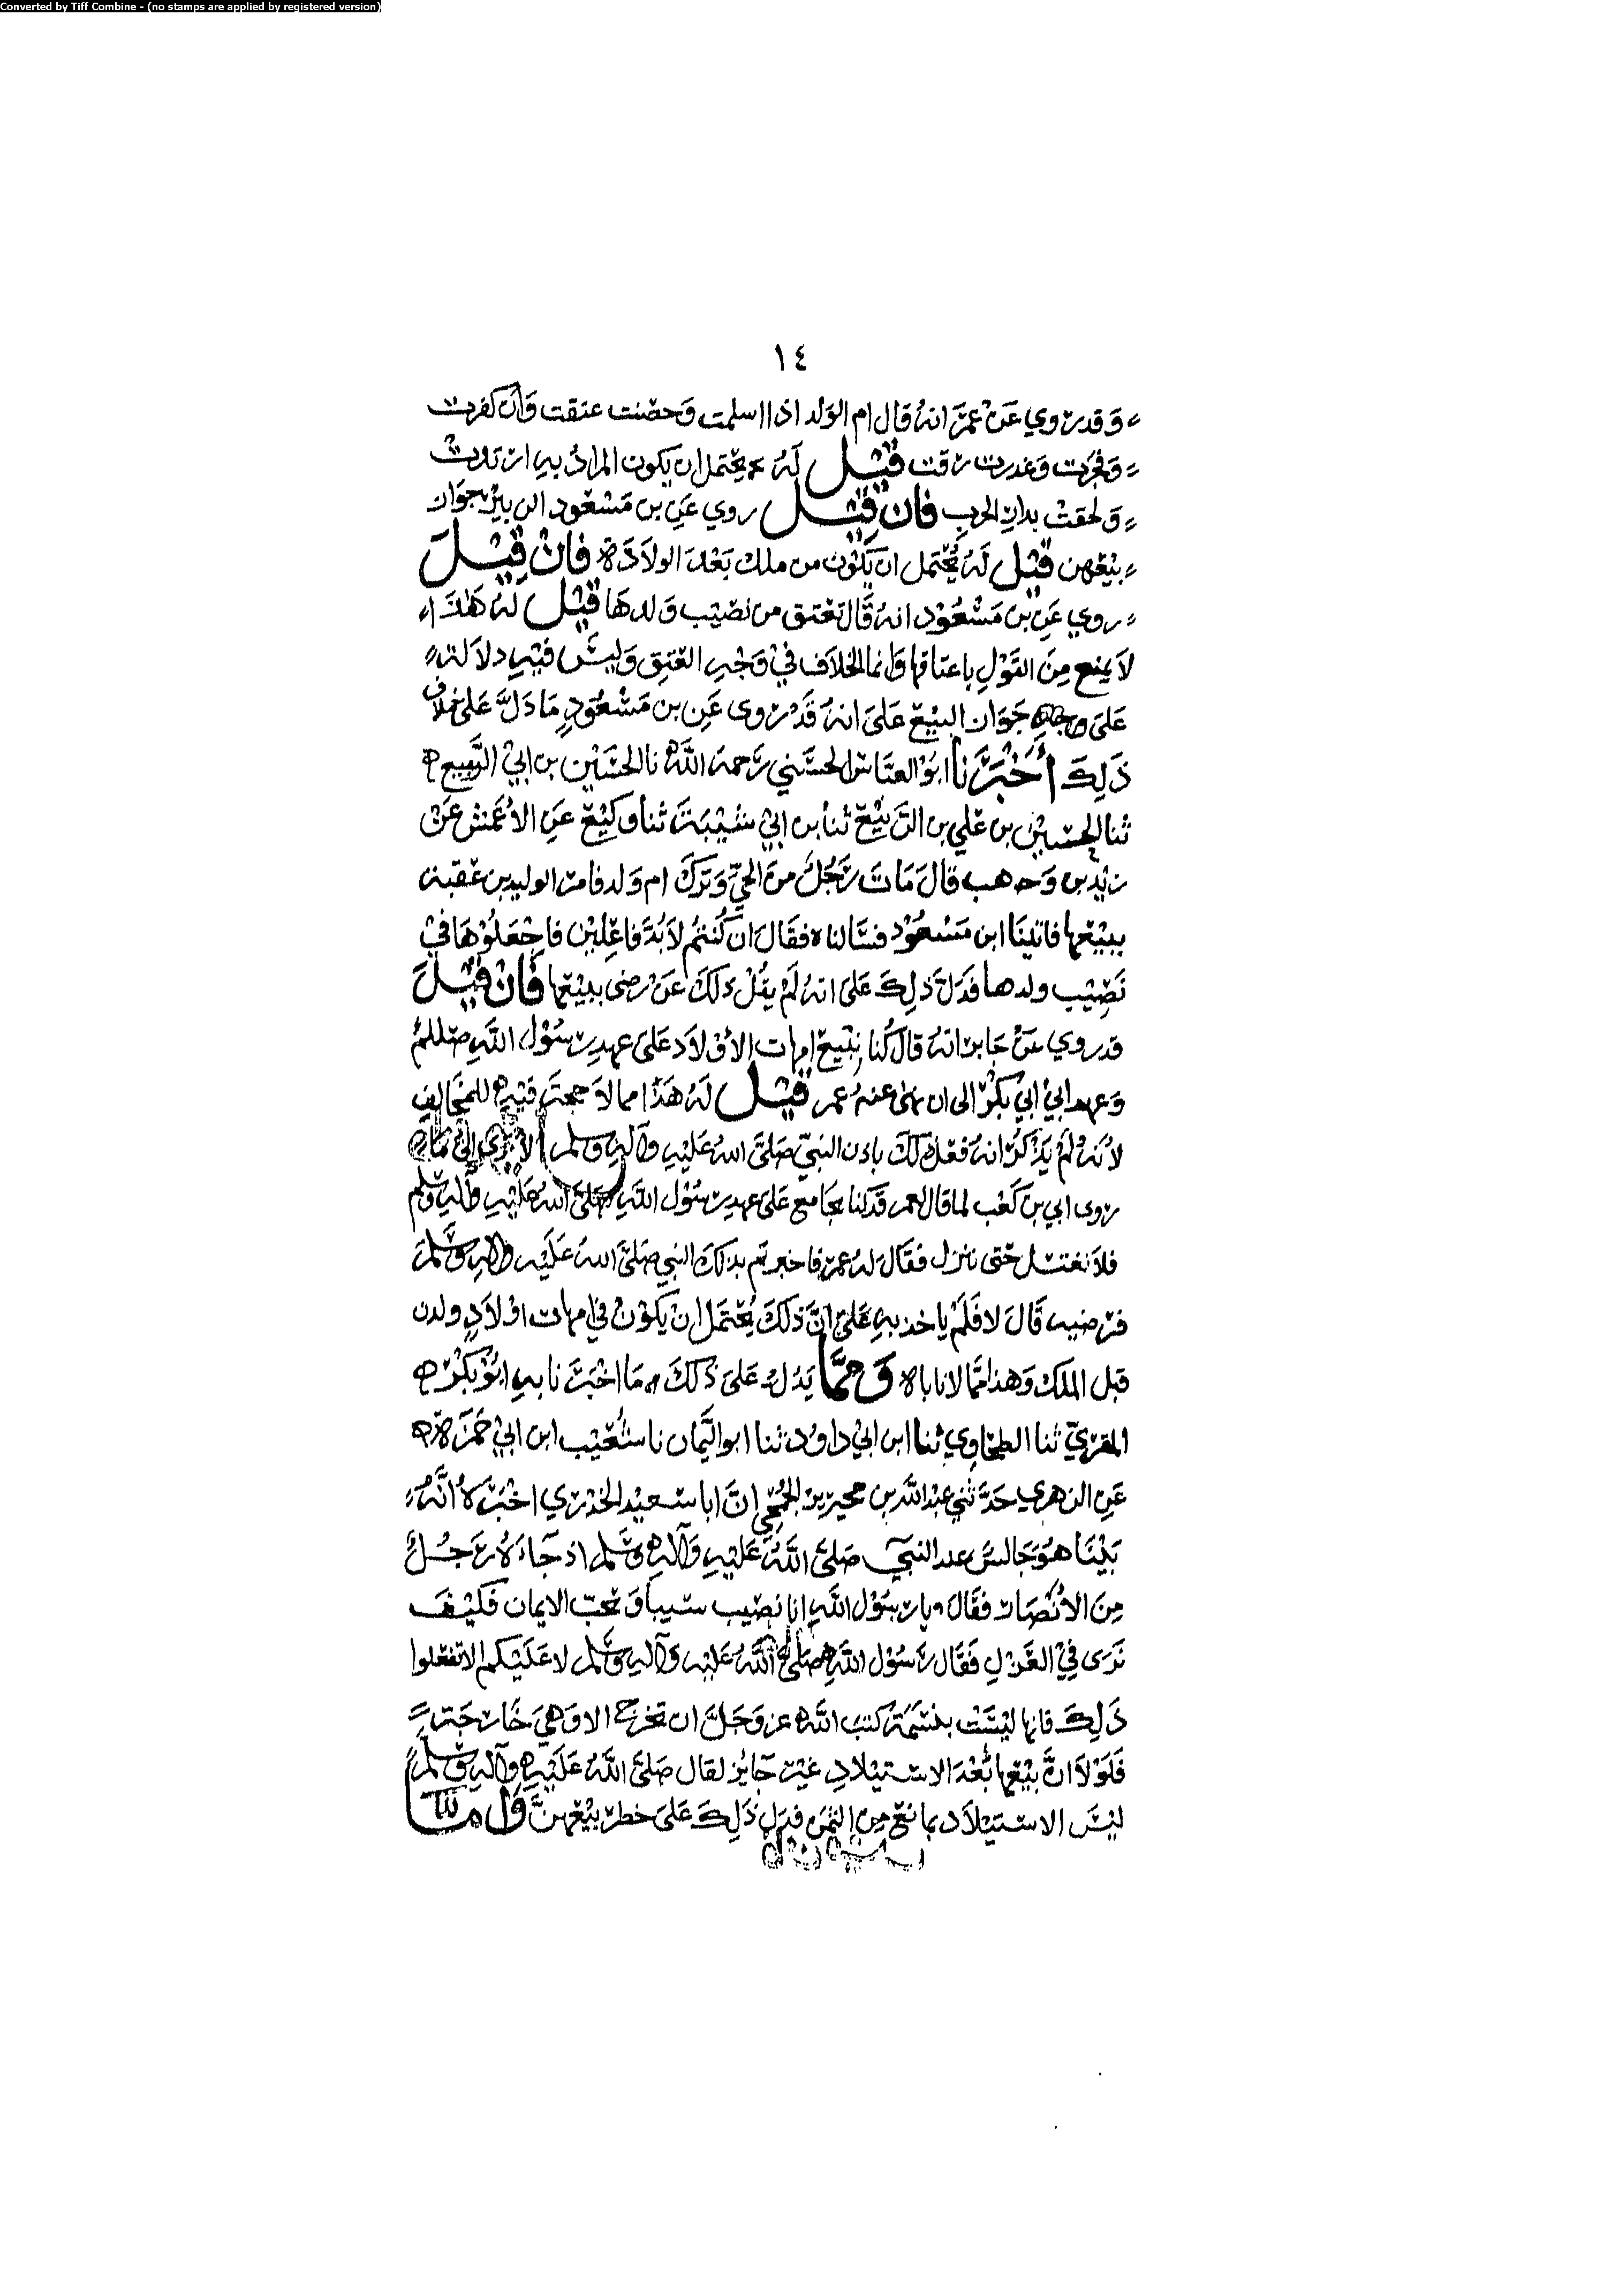 Converted by Tiff Combine - (no stamps are applied by registered version)
١٤
وقد روي عن عمر انه قال ام الولد اذا اسلمت وحصنت عتقت وان كفرت
وفجرت وغدرت رقت قيل له يحتمل ان يكون المراد به ان ردت
ولحقت بدار الحرب فان قيل روي عن بن مسعود ابن بير بجواز
بيعهن قيل له يحتمل ان يكون من ملك بعد الولادة فان قيل
روي عن بن مسعود انه قال تعتق من نصيب ولدها قيل له هذا
لا يمنع من القول باعتاقها وانما الخلاف في وجه العتق وليس فيه دلالة
على جواز البيع على انه قد روى عن بن مسعود ما دل على خلاف
ذلك أخبرنا ابو العباس الحسني رحمه الله نا الحسين بن ابي الربيع
ثنا الحسين بن علي بن الربيع ثنا بن ابي شيبة ثنا وكيع عن الأعمش عن
زيد بن وهب قال مات رجل من الحي وترك ام ولد فامر الوليد بن عقبة
ببيعها فاتينا ابن مسعود فسالناه فقال ان كنتم لابد فاعلين فاجعلوها في
نصيب ولدها فدل ذلك على انه لم يقل ذلك عن رضى ببيعها فان قيل
قد روي عن جابر انه قال كنا نبيع امهات الأولاد على عهد رسول الله صللم
وعهد ابي ابي بكر الى ان نهى عنه عمر قيل له هذا مما لا حجة فيه للمخالف
لأنه لم يذكر انه فعل ذلك باذن النبي صلى الله عليه وآله وسلم الا ترى الى ما
روى ابي بن كعب لما قال لعمر قد كنا نجامع على عهد رسول الله صلى الله عليه وآله وسلم
فلا نغتسل حتى ننزل فقال له عمر فاخبرتم بذلك النبي صلى الله عليه وآله وسلم
فرضيه قال لا فلم ياخذ به على ان ذلك يحتمل ان يكون في امهات اولاد ولدن
قبل الملك وهذا مما لا ناباه ومما يدل على ذلك ما اخبرنا به ابو بكر
المقري ثنا الطحاوي ثنا ابن ابي داود ثنا ابو اليمان نا شعيب ابن ابي حمزة
عن الزهري حدثني عبد الله بن محيريز الجمحي ان ابا سعيد الخدري اخبره أنه
بينا هو جالس عند النبي صلى الله عليه وآله وسلم اذ جاءه رجل
من الأنصار فقال يا رسول الله انا نصيب سبيا ونحب الايمان فكيف
نرى في العزل فقال رسول الله صلى الله عليه وآله وسلم لا عليكم الا تفعلوا
ذلك فانها ليست بنسمة كتب الله عز وجل ان تخرج الا وهي خارجة
فلولا ان بيعها بعد الاستيلاد غير جايز لقال صلى الله عليه وآله وسلم
ليس الاستيلاد بمانع من الثمن فدل ذلك على خطر بيعهن ول